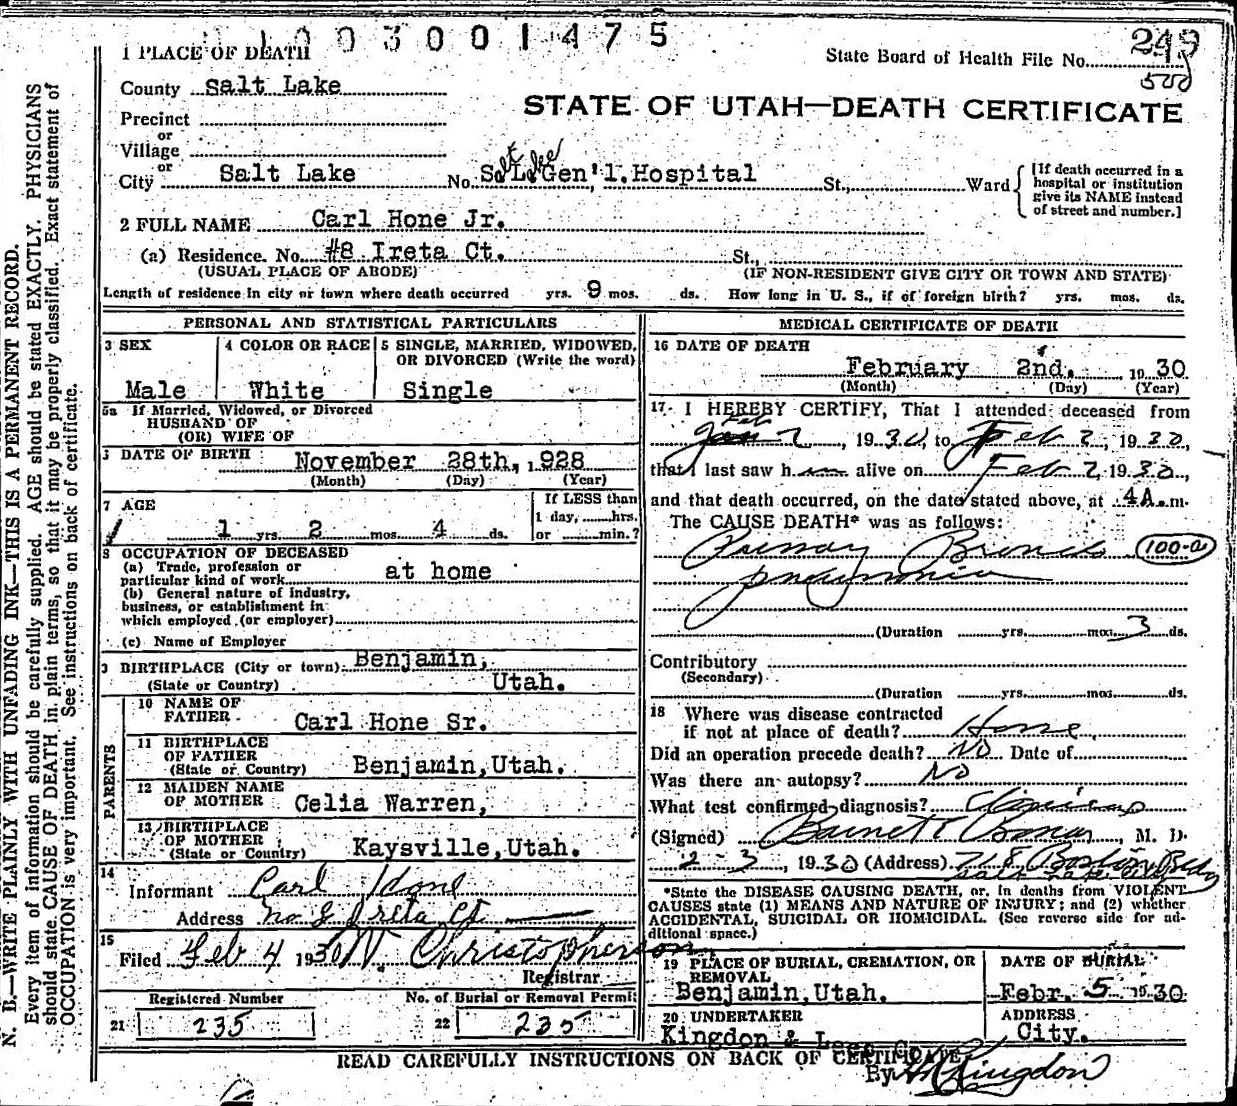 1003001475
1 PLACE OF DEATH
State Board of Health File No. 249
500
County Salt Lake
STATE OF UTAH—DEATH CERTIFICATE
Precinct
or
Village
or
City Salt Lake No. Salt Lake Gen'l. Hospital St., Ward
[If death occurred in a hospital or institution give its NAME instead of street and number.]
2 FULL NAME Carl Hone Jr.
(a) Residence. No. #8 Ireta Ct. St.,
(USUAL PLACE OF ABODE) (IF NON-RESIDENT GIVE CITY OR TOWN AND STATE)
Length of residence in city or town where death occurred yrs. 9 mos. ds. How long in U. S., if of foreign birth? yrs. mos. ds.
PERSONAL AND STATISTICAL PARTICULARS
3 SEX 4 COLOR OR RACE 5 SINGLE, MARRIED, WIDOWED, OR DIVORCED (Write the word)
Male White Single
5a If Married, Widowed, or Divorced
HUSBAND OF
(OR) WIFE OF
DATE OF BIRTH November 28th, 1928
(Month) (Day) (Year)
7 AGE If LESS than
1 day, hrs.
1 yrs. 2 mos. 4 ds. or min.?
8 OCCUPATION OF DECEASED
(a) Trade, profession or
particular kind of work at home
(b) General nature of industry,
business, or establishment in
which employed (or employer)
(c) Name of Employer
9 BIRTHPLACE (City or town) Benjamin,
(State or Country) Utah.
PARENTS
10 NAME OF
FATHER Carl Hone Sr.
11 BIRTHPLACE
OF FATHER
(State or Country) Benjamin, Utah.
12 MAIDEN NAME
OF MOTHER Celia Warren,
13 BIRTHPLACE
OF MOTHER
(State or Country) Kaysville, Utah.
14
Informant Carl Hone
Address No 8 Ireta Ct
15
Filed Feb 4 1930 W. Christopherson
Registrar
Registered Number No. of Burial or Removal Permit
21 235 22 235
MEDICAL CERTIFICATE OF DEATH
16 DATE OF DEATH
February 2nd. 1930
(Month) (Day) (Year)
17 I HEREBY CERTIFY, That I attended deceased from
Feb
Jan 2, 1930 to Feb 2, 1930,
that I last saw h im alive on Feb 2, 1930,
and that death occurred, on the date stated above, at 4A.m.
The CAUSE DEATH* was as follows:
Primary Broncho 100-a
pneumonia
(Duration yrs. mos. 3 ds.
Contributory
(Secondary)
(Duration yrs. mos. ds.
18 Where was disease contracted
if not at place of death? Home
Did an operation precede death? NO Date of
Was there an autopsy? NO
What test confirmed diagnosis? Clinical
(Signed) Barnett Bonar, M. D.
2-3, 1930 (Address) 718 Boston Bldg
Salt Lake City
*State the DISEASE CAUSING DEATH, or, in deaths from VIOLENT
CAUSES state (1) MEANS AND NATURE OF INJURY; and (2) whether
ACCIDENTAL, SUICIDAL OR HOMICIDAL. (See reverse side for ad-
ditional space.)
19 PLACE OF BURIAL, CREMATION, OR
REMOVAL
Benjamin, Utah.
DATE OF BURIAL
Febr. 5 1930
20 UNDERTAKER
Kingdon &
ADDRESS
City.
By Kingdon
READ CAREFULLY INSTRUCTIONS ON BACK OF CERTIFICATE
N. B.—WRITE PLAINLY WITH UNFADING INK—THIS IS A PERMANENT RECORD.
Every item of information should be carefully supplied. AGE should be stated EXACTLY. PHYSICIANS
should state CAUSE OF DEATH in plain terms, so that it may be properly classified. Exact statement of
OCCUPATION is very important. See instructions on back of certificate.